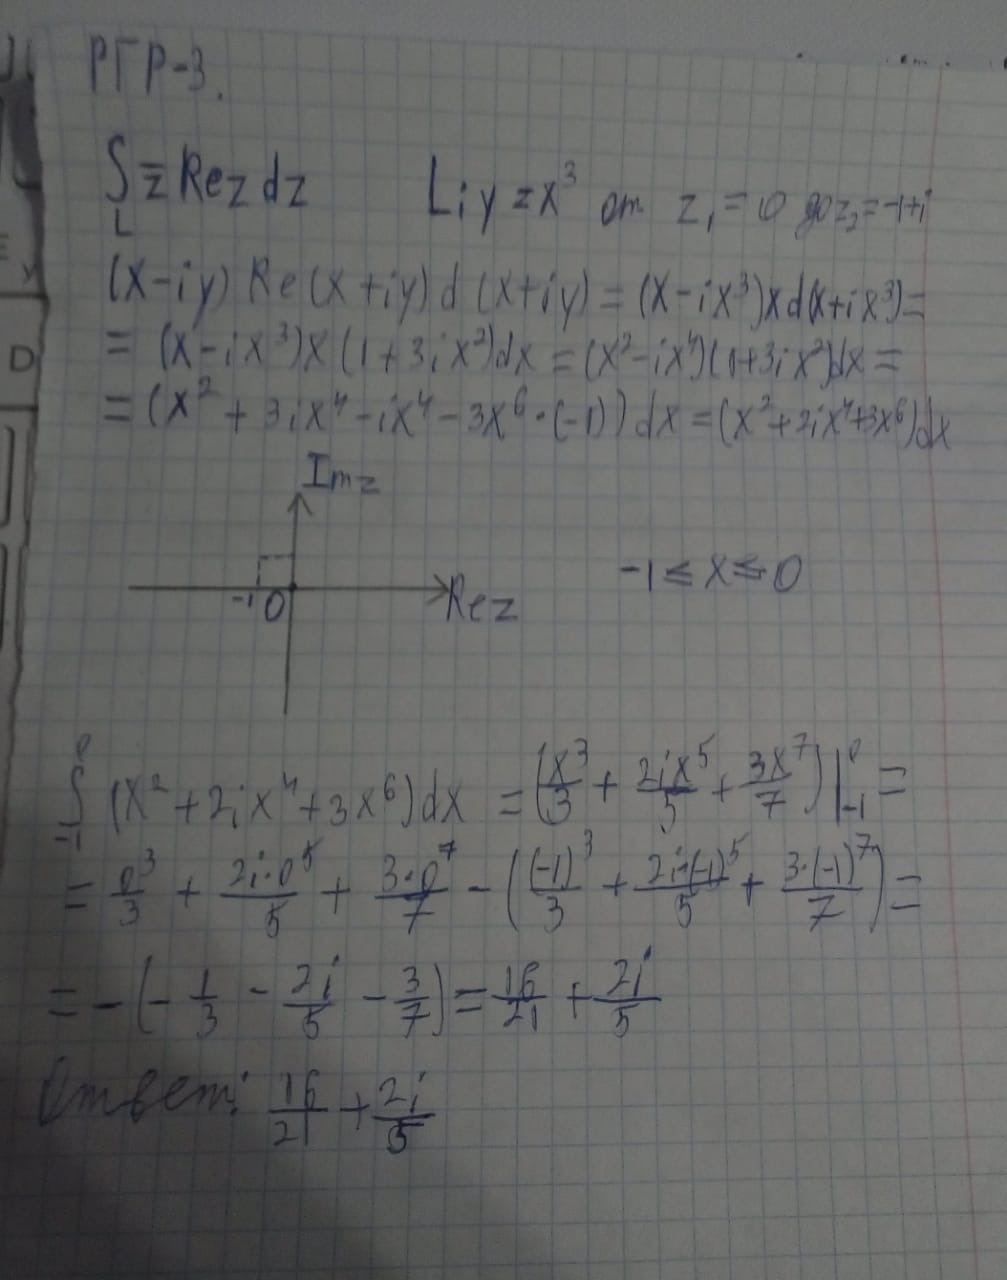 РГР-3.
∫_L z̄ Re z dz   L: y = x³ от z₁ = 0 до z₂ = -1+i
(x-iy) Re(x+iy) d(x+iy) = (x-ix³)xd(x+ix³) =
= (x-ix³)x(1+3ix²)dx = (x²-ix⁴)(1+3ix²)dx =
= (x² + 3ix⁴ - ix⁴ - 3x⁶·(-1))dx = (x²+2ix⁴+3x⁶)dx
Im z
-1 0 Re z
-1 ≤ x ≤ 0
∫_{-1}^{0} (x² + 2ix⁴ + 3x⁶)dx = (x³/3 + 2ix⁵/5 + 3x⁷/7)|_{-1}^{0} =
= 0³/3 + 2i·0⁵/5 + 3·0⁷/7 - ((-1)³/3 + 2i·(-1)⁵/5 + 3·(-1)⁷/7) =
= -(-1/3 - 2i/5 - 3/7) = 16/21 + 2i/5
Ответ: 16/21 + 2i/5